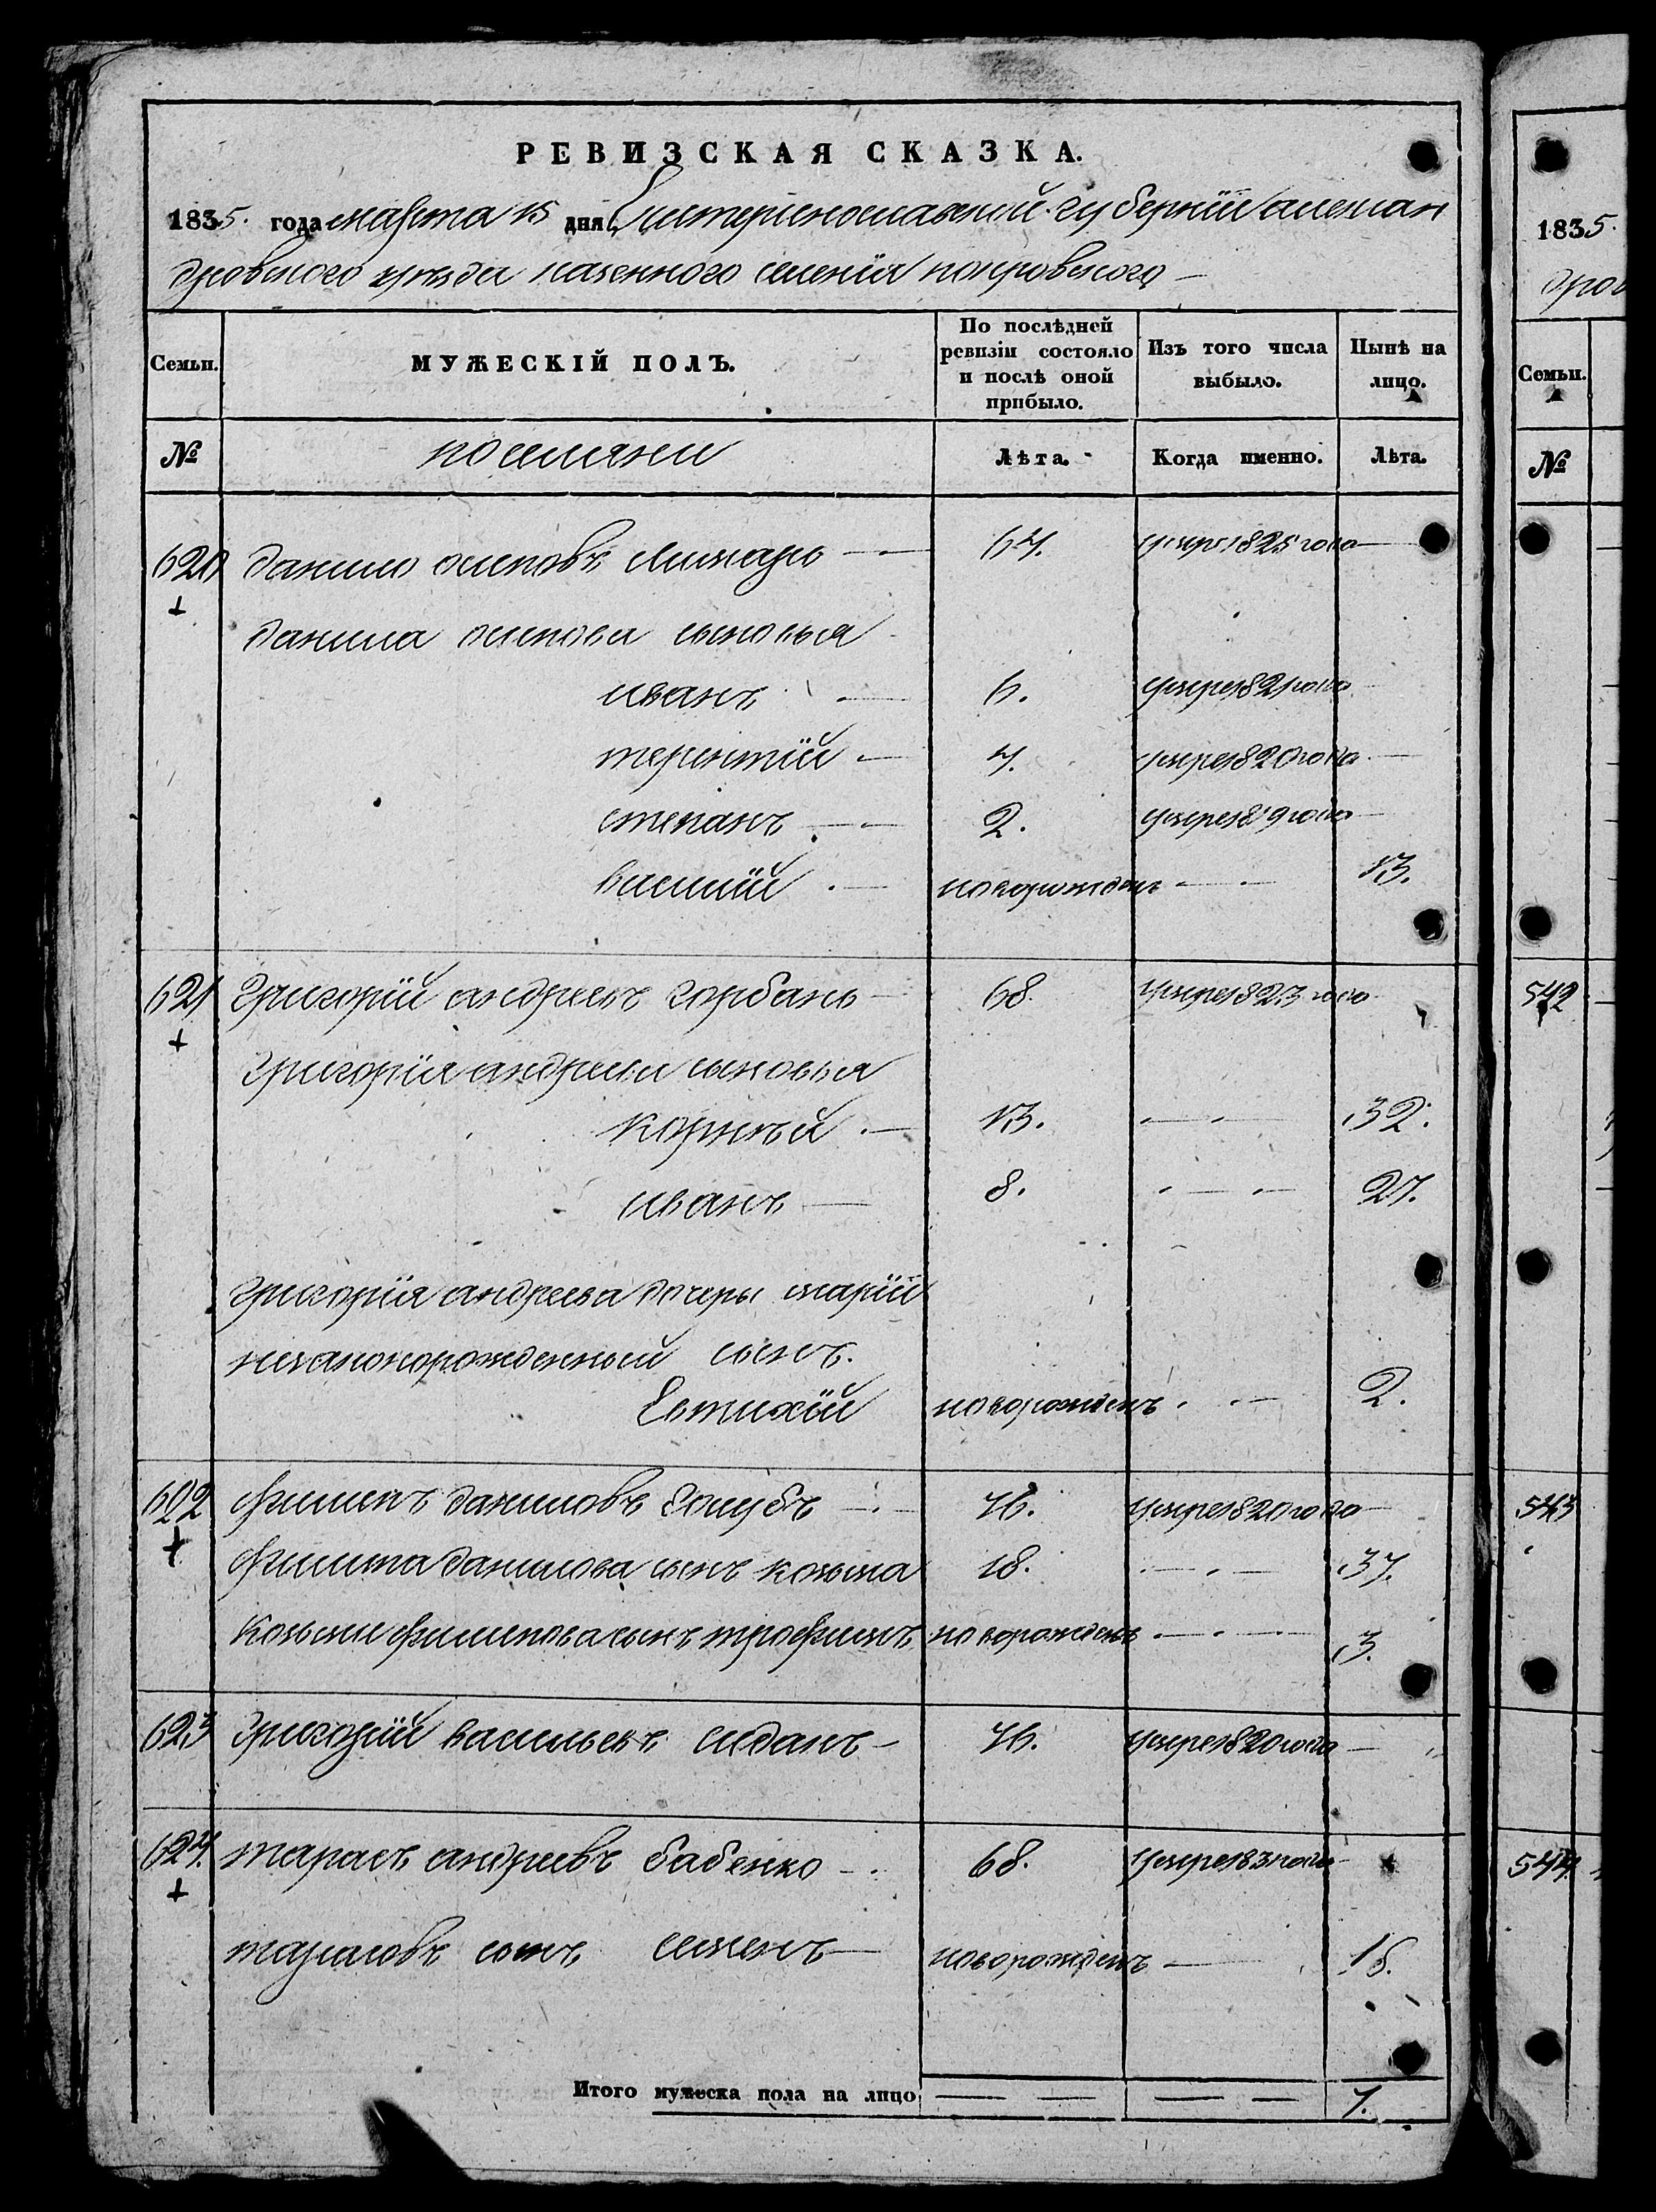 РЕВИЗСКАЯ СКАЗКА.
1835. года марта 15 дня Екатеринославской губернїи алексан
дровского уѣзда казенного селенїя покровского
Семьи. МУЖЕСКІЙ ПОЛЪ. По послѣдней ревизіи состояло и послѣ оной прибыло. Изъ того числа выбыло. Нынѣ на лицо.
№ поселяни Лѣта. Когда именно. Лѣта.
620 Данило осиповъ 64. умер 1825 года
Данила осипова сыновья
иванъ 6. умре 1821 года
терентїй 4. умре 1820 года
степанъ 2. умре 1819 года
василїй новорожденъ 13.
621 Григорїй андреевъ горбань 68. умре 1823 года
Григорїя андреева сыновья
Корнѣй 13. 32.
иванъ 8. 27.
григорїя андреева дочеры марїи
незаконорожденный сынъ.
Евтихїй новорожденъ 2.
622 филипъ даниловъ Голубъ 46. умре 1820 года
филипа данилова сынъ козьма 18. 37.
Козьми филипова сынъ трофимъ новорожденъ 3.
623 Григорїй васильевъ седакъ 46. умре 1820 года
624. тарасъ андреевъ бабенко 68. умре 1831 года
тарасовъ сынъ семенъ новорожденъ 18.
Итого мужеска пола на лицо 7.
1835.
дров
Семьи.
№
542
543
544